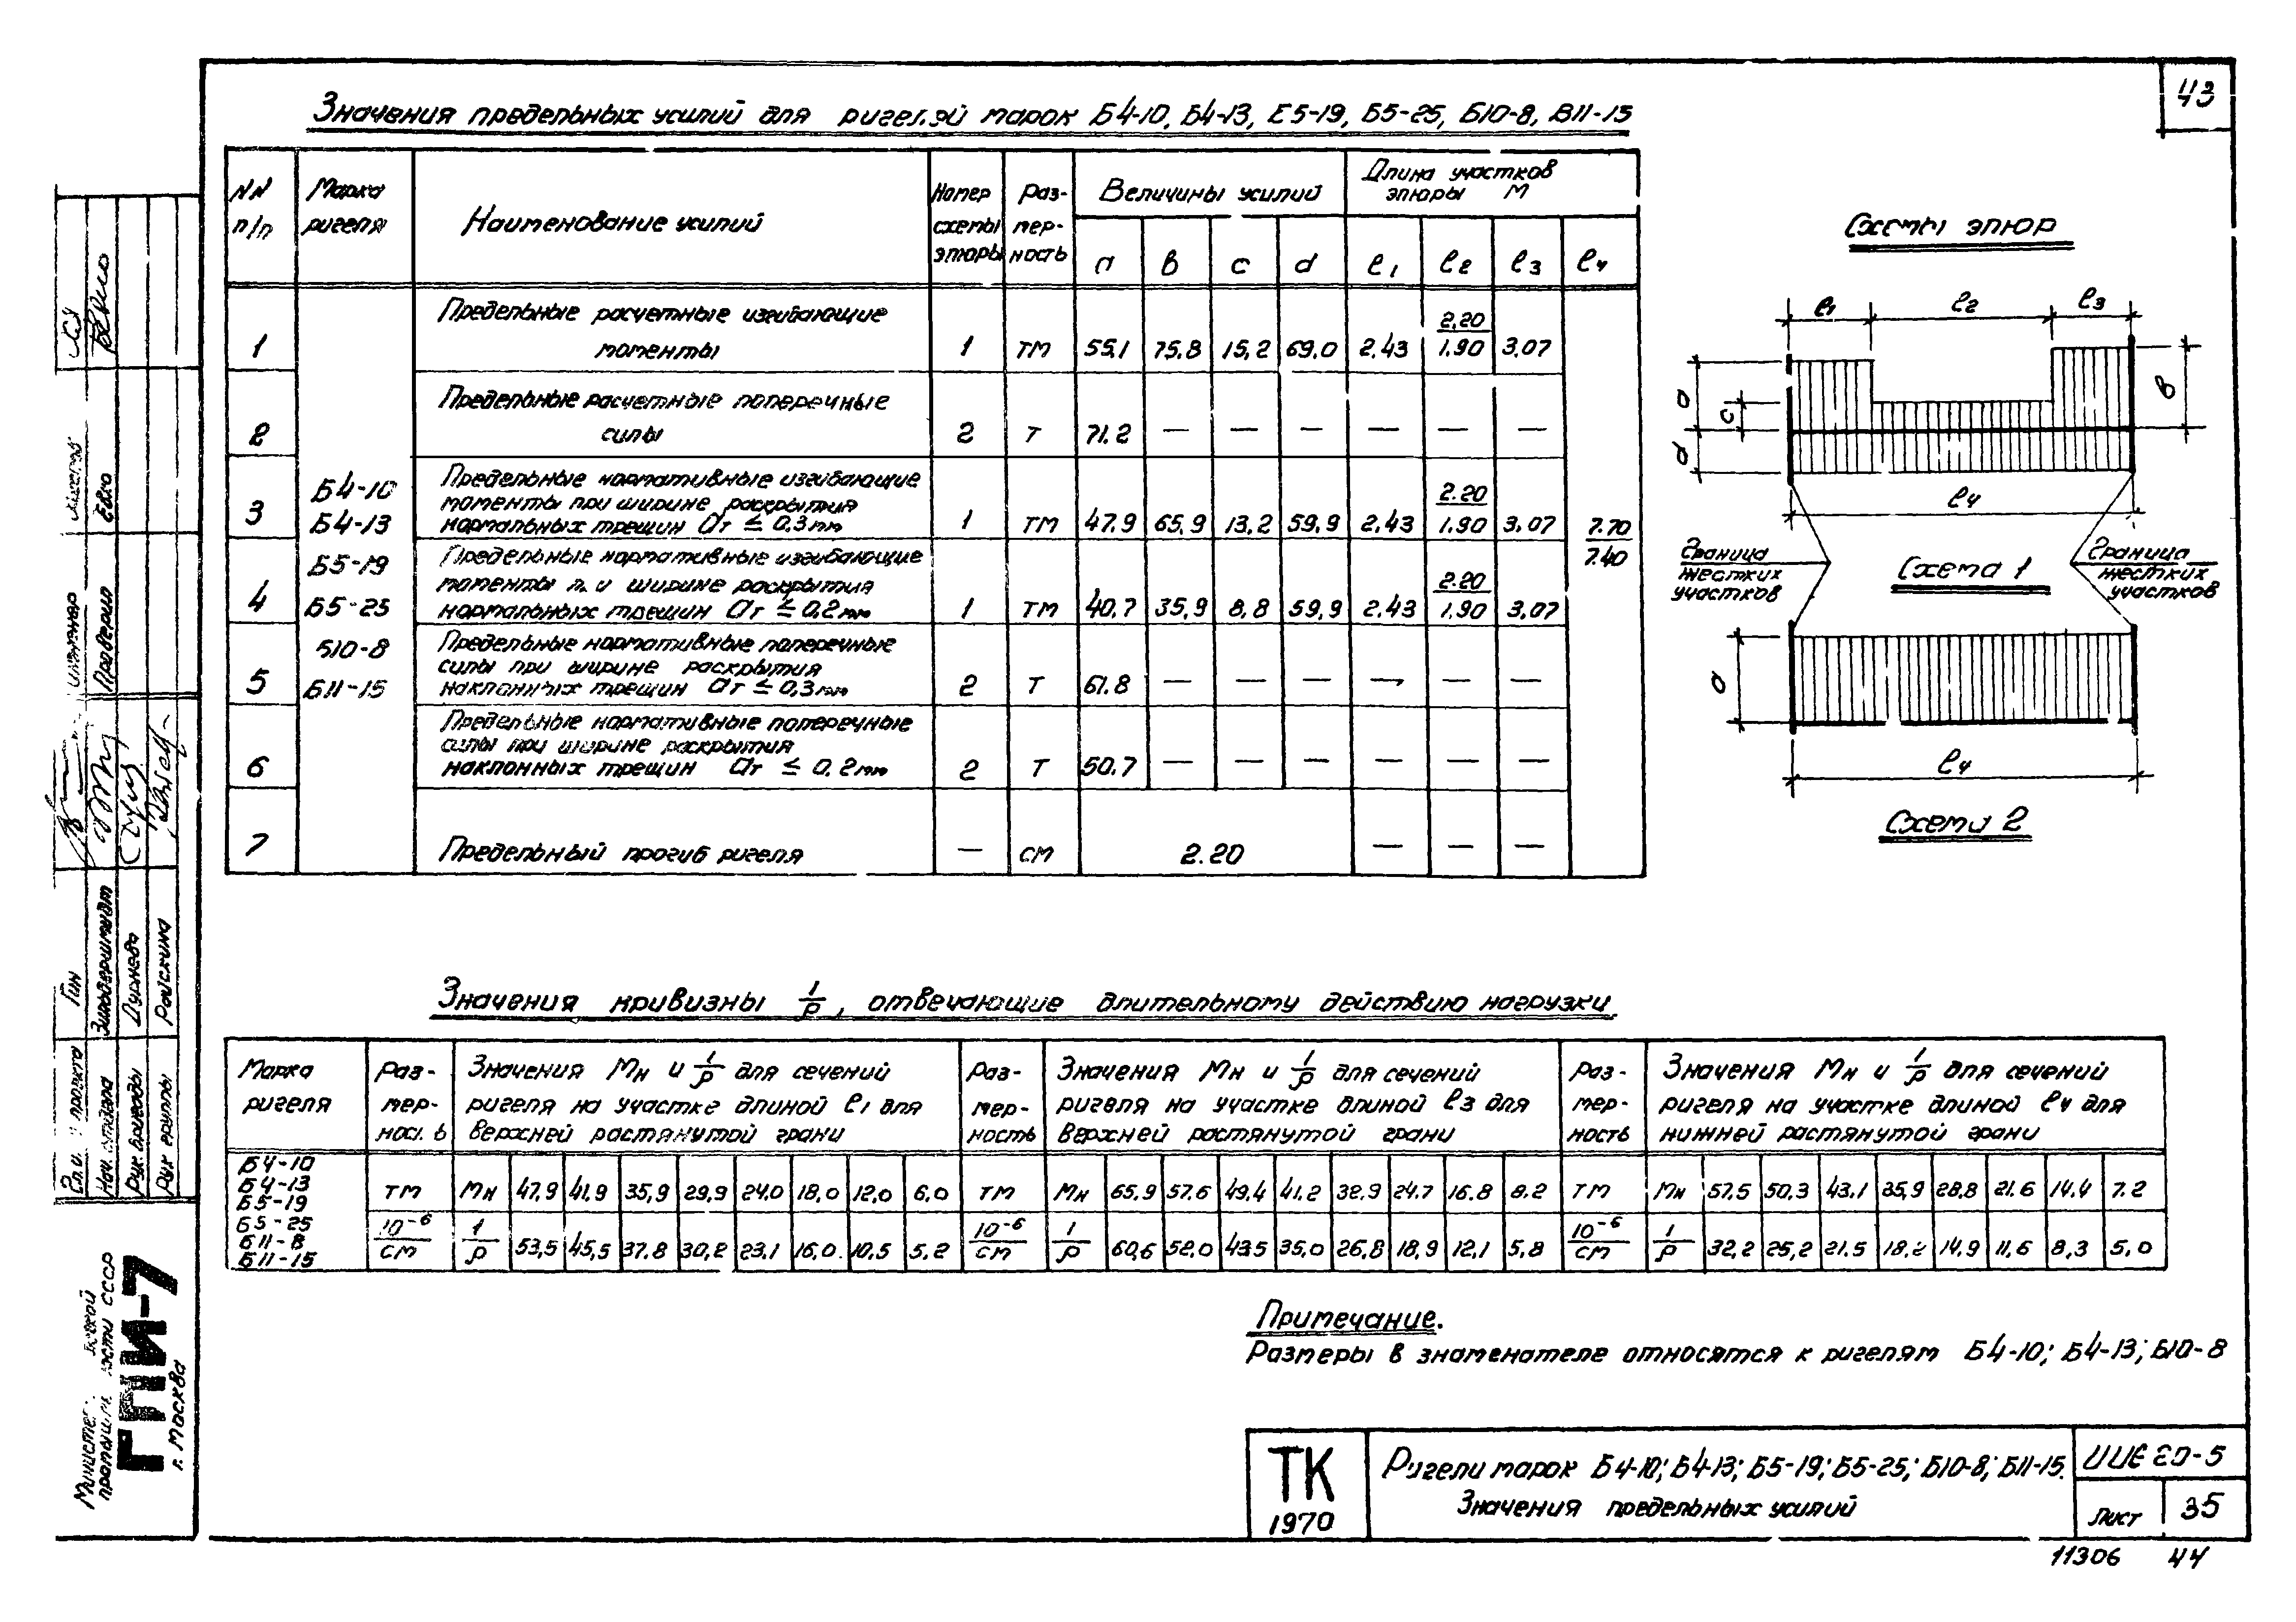 43
Значения предельных усилий для ригелей марок Б4-10, Б4-13, Б5-19, Б5-25, Б10-8, Б11-15
NN п/п | Марка ригеля | Наименование усилий | Номер схемы эпюры | Размерность | Величины усилий | Длина участков эпюры м
a | b | c | d | ℓ1 | ℓ2 | ℓ3 | ℓ4
1 | Предельные расчетные изгибающие моменты | 1 | ТМ | 55,1 | 75,8 | 15,2 | 69,0 | 2.43 | 2,20/1.90 | 3,07
2 | Предельные расчетные поперечные силы | 2 | Т | 71.2 | — | — | — | — | — | —
Б4-10
Б4-13
Б5-19
Б5-25
Б10-8
Б11-15
3 | Предельные нормативные изгибающие моменты при ширине раскрытия нормальных трещин aт ≤ 0,3мм | 1 | ТМ | 47.9 | 65,9 | 13,2 | 59,9 | 2.43 | 2.20/1.90 | 3,07
7.70/7.40
4 | Предельные нормативные изгибающие моменты при ширине раскрытия нормальных трещин aт ≤ 0,2мм | 1 | ТМ | 40.7 | 35,9 | 8,8 | 59,9 | 2.43 | 2.20/1.90 | 3,07
5 | Предельные нормативные поперечные силы при ширине раскрытия наклонных трещин aт ≤ 0,3мм | 2 | Т | 61.8 | — | — | — | — | — | —
6 | Предельные нормативные поперечные силы при ширине раскрытия наклонных трещин aт ≤ 0,2мм | 2 | Т | 50.7 | — | — | — | — | — | —
7 | Предельный прогиб ригеля | — | см | 2.20 | — | — | —
Схемы эпюр
ℓ1 ℓ2 ℓ3
a c d b
ℓ4
Граница жестких участков
Схема 1
Граница жестких участков
a
ℓ4
Схема 2
Значения кривизны 1/ρ, отвечающие длительному действию нагрузки
Марка ригеля | Размерность | Значения Мн и 1/ρ для сечений ригеля на участке длиной ℓ1 для верхней растянутой грани | Размерность | Значения Мн и 1/ρ для сечений ригеля на участке длиной ℓ3 для верхней растянутой грани | Размерность | Значения Мн и 1/ρ для сечений ригеля на участке длиной ℓ4 для нижней растянутой грани
Б4-10
Б4-13
Б5-19
Б5-25
Б11-8
Б11-15
ТМ | Мн | 47.9 | 41.9 | 35,9 | 29,9 | 24.0 | 18,0 | 12,0 | 6.0 | ТМ | Мн | 65.9 | 57.6 | 49.4 | 41.2 | 32.9 | 24.7 | 16.8 | 8.2 | ТМ | Мн | 57.5 | 50.3 | 43.1 | 35.9 | 28.8 | 21.6 | 14.4 | 7.2
10⁻⁶/см | 1/ρ | 53,5 | 45,5 | 37.8 | 30,2 | 23,1 | 16,0 | 10,5 | 5,2 | 10⁻⁶/см | 1/ρ | 60,6 | 52,0 | 43.5 | 35,0 | 26,8 | 18,9 | 12,1 | 5,8 | 10⁻⁶/см | 1/ρ | 32,2 | 25,2 | 21.5 | 18,2 | 14.9 | 11,6 | 8,3 | 5,0
Примечание.
Размеры в знаменателе относятся к ригелям Б4-10; Б4-13; Б10-8
ТК
1970
Ригели марок Б4-10; Б4-13; Б5-19; Б5-25; Б10-8; Б11-15.
Значения предельных усилий
ИИЕ 20-5
Лист 35
11306 44
инженер
Проверил Евко
Гл. и проекта Гин
Нач. отдела Зильбершмидт
Рук. бригады Дурнева
Рук. группы Раискина
промышл ости СССР
ГПИ-7
г. Москва